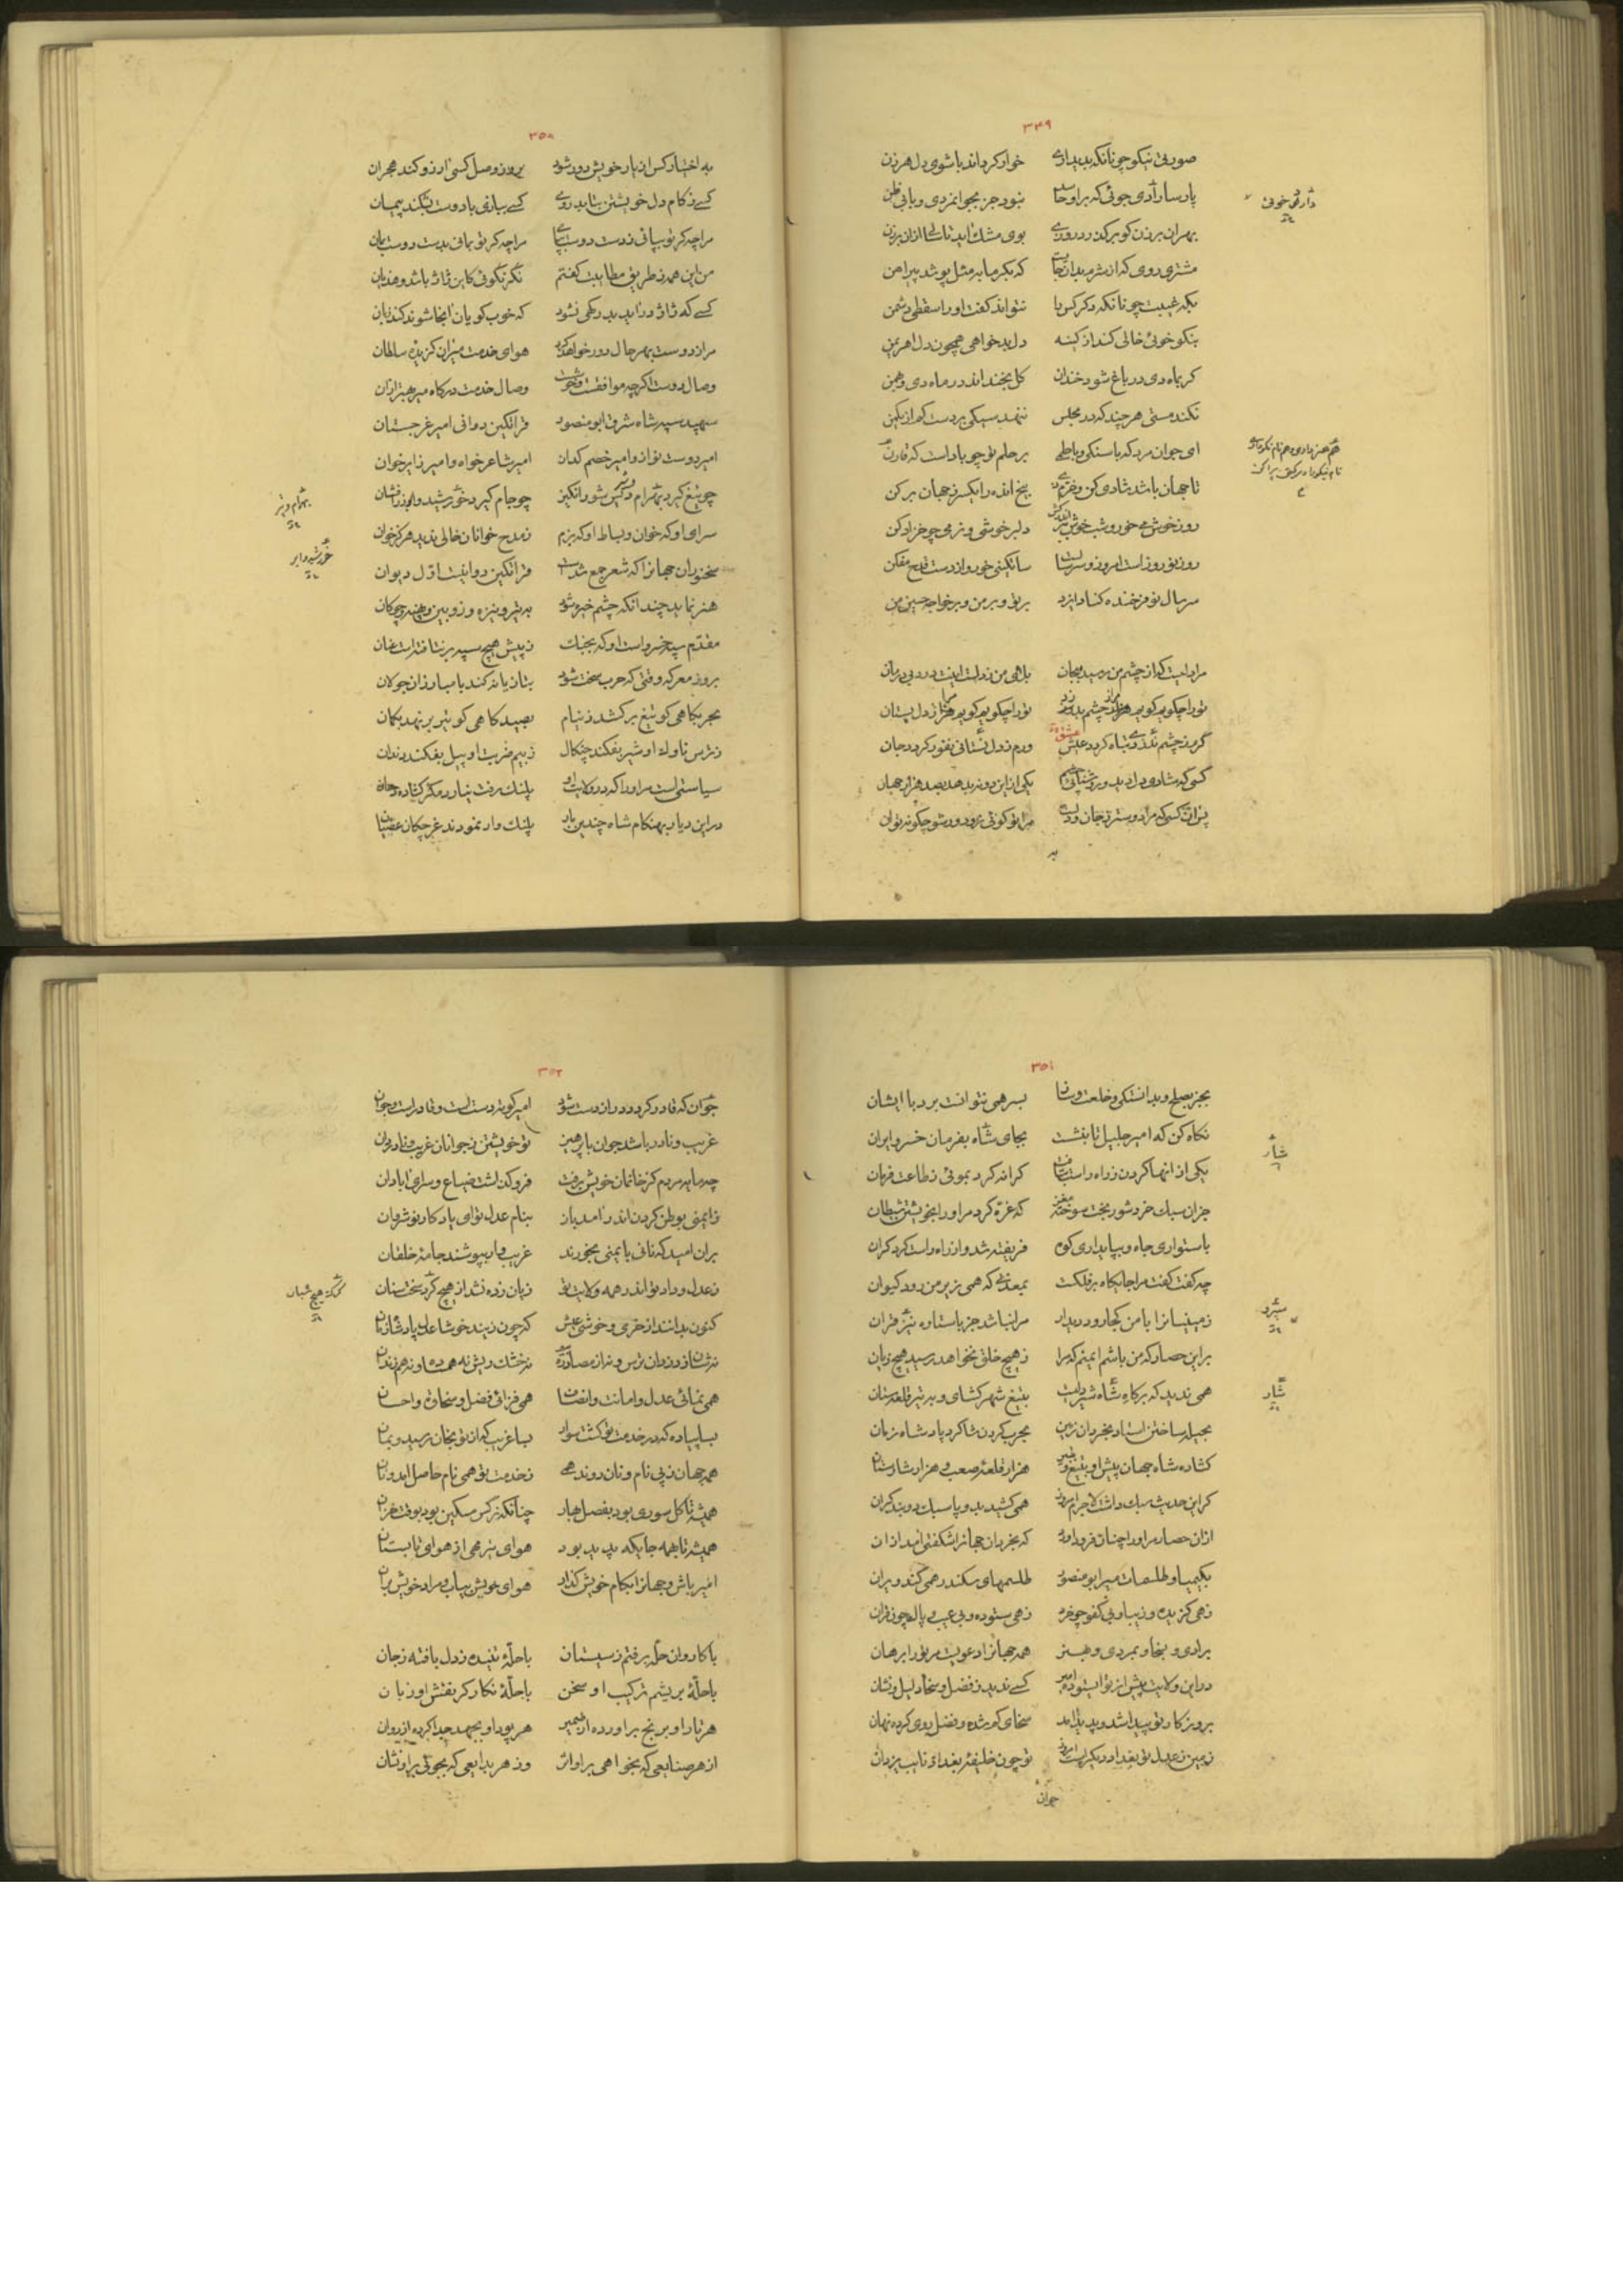 ۳۴۹
صورتی نیکو چونانکه بدیدارے خوار کرداند با شوی دل هر زن
پارسا رادی جوئی که بر او خاست نبود جز بجوانمردی و رادی ظن
مشتری روی که از شرم بدانجا که بکرمابه مثل پوشد پیراهن
بکه غیبت چونانکه ذکر کس نتواند کفت او را سقطی دشمن
بنکو خوئی خالی کند از کینه دل بدخواهی همچون دل اهریمن
کر بماه دی در باغ شود خندان کل بخنداند در ماه دی و بهمن
نکند مستی هر چند که در مجلس ننهد سیکی بر دست کم از یکمن
ای جوانمرد که با سنکی و با حلمی بر حلم تو چو باد است که قارن
تا جهان باشد شادی کن و خرم زی بیخ انده را یکسر ز جهان برکن
روز خوش می خور و شب خوش ببر اندر کش دلبر خوشی و نرمی چو خز ادکن
روز نوروز است امروز و سر سال ساتکینی خور و از دست قدح مفکن
سر سال نو فرخنده کناد ایزد بر تو و بر من و بر خواجه حسین من
مرا دلیست که از چشم من رسید بجان بلای من ز دلست اینت درد بی درمان
تو را چکویم کویم مرا ز چشم بدزد تو را چکویم کویم مرا ز دل بستان
کرم ز چشم بدزدی تباه کردد عیش ورم ز دل بستانی نفور کردد جان
کسی که شادی دل دید و روشنائی چشم یکی از این دو نبدهد بصد هزار جهان
پس آن کسی که مرا دوستر ز جان و دلست مرا تو کوئی زو دور شو چکونه توان
به
دارنکو خوئی
۳۵۰
به اختیار کس از یار خویش دور شود بروز وصل کسی ارزو کند هجران
کسے ز کام دل خویشتن بتابد روے کسے ببازی با دوست بشکند پیمان
مرا چه کر تو بیابی ز دوست دوست بیاب مرا چه کر تو بمانی بدست دوست بمان
من این همه ز طریق مطایبت کفتم نکر نکوئی کاین ژاژ باشد و هذیان
کسے که ژاژ دراید بدرکهی نشود که خوب کویان انجا شوند کند زبان
مرا ز دوست بهر حال دور خواهد کرد هوای خدمت میران کزیده سلطان
وصال دوست اکرچه موافقست و خوشست وصال خدمت درکاه میر بهتر از ان
سپهبد سپه شاه شرق ابو منصور قراتکین دوانی امیر غرجستان
امیر دوست نواز و امیر خصم کداز امیر شاعر خواه و امیر زایر خوان
چو تیغ کیرد بهرام کیس شور انکیز چو جام کیرد خورشید و ابر زرافشان
سرای او که خوان و بساط او که بزم ز مدح خوانان خالی ندید هرکز خوان
سخنوران جهان را که شعر جمع شدست قراتکین دوانیست اول دیوان
هنر نماید چندانکه چشم خیره شود به تیر و نیزه و زوبین و پهنه و چوکان
مقدم سپه خسرو است او که بجنک ز پیش هیچ سپه بر نتافته است عنان
بروز معرکه وقتی که حرب سخت شود بتازیانه کند با مبارزان جولان
بحربکاهی کو تیغ برکشد ز نیام بصیدکاهی کو تیر برنهد بکمان
ز ترس ناوک او شیر بفکند چنکال ز بیم ضربت او پیل بفکند دندان
سیاستی است مر او را که در ولایت او پلنک رفت نیارد مکر کشاده دهان
در این دیار بهنکام شاه چندین بار پلنک وار نمودند غرچکان عصیان
بهرام و تیر
خورشید و ابر
۳۵۱
بجز بصلح و بدانستکی و خلعت و ساز بسر همی نتوانست برد با ایشان
نکاه کن که امیر جلیل تا بنشست بجای شاه بفرمان خسرو ایران
یکی از انها کردن ز راه راست نتافت کرانه کرد بموئی ز طاعت و فرمان
جز ان سبک خرد شوربخت سوخته مغز که غره کرد مر او را بخویشتن شیطان
باستواری جاه و بپایداری کوه فریفته شد و از راه راست کرد کران
چه کفت کفت مرا جایکاه بر فلکست بمعدنی که همی زیر من رود کیوان
زمینیان را با من کجا رود دیدار مرا نباشد جز با ستاره نیز قران
بر این حصار که من باشم ایمنم که مرا ز هیچ خلق نخواهد رسید هیچ زیان
همی ندید که برکاه شاه شیر دلست بتیغ شهر کشای و به تیر قلعه ستان
بحیله ساختن استاد بخردان زمین بحرب کردن شاکرد پادشاه زمان
کشاده شاه جهان پیش او بتیغ و تبر هزار قلعه صعب و هزار شارستان
کر این حدیث سبک داشت لاجرم امروز همی کشید بدو پای سبک دو بند کران
از ان حصار مر او را چنان فرود اورد که بخردان جهان را شکفتی امد از ان
بکیمیا و طلسمات میر ابو منصور طلسمهای سکندر همی کند ویران
زهی کزیده و زیبا و بی کفو چو خرد زهی ستوده و بی عیب و پاک چون قران
برادی و بسخا و بمردی و بهنر همه جهان را دعویست مر تو را برهان
در این ولایت پیش از تو ای ستوده امیر کسے ندید ز فضل و سخا دلیل و نشان
بروزکار تو پیدا شد و پدید امد سخای کم شده و فضل روی کرده نهان
زمین ز عدل تو بغداد دیکر است امروز تو چون خلیفهٔ بغداد نایب یزدان
جوان
شار
شیرد
شار
۳۵۲
جوان که قادر کردد دراز دست شود امیر کوته دست است و قادر است و جوان
غریب و نادر باشد جوان با پرهیز تو خویشتن ز جوانان غریب و نادر دان
چه مایه مردم کز خانمان خویش برفت فرو کذاشت ضیاع و سرای ابادان
ز ایمنی بوطن کردن اندر امد باز بنام عدل تو ای یادکار نوشروان
بر ان امید که نانی بایمنی بخورند غریب وار بپوشند جامهٔ خلقان
ز عدل و داد تو اندر همه ولایت تو زیان زده نشد از هیچ کرد سخت سنان
کنون بدانند از خرمی و خوشی عیش که چون زیند خوشا عدل پادشا زمان
همی نمائی عدل و امانت و انصاف همی فزائی فضل و سخاوت و احسان
بسا پیاده که در خدمت تو کشت سوار بسا غریب که از تو بخان رسید و بمان
همه جهان ز پی نام و نان دوند همے ز خدمت تو همی نام حاصل اید و نان
همیشه تا کل سوری بود بفصل بهار چنانکه نرکس مسکین بود بوقت خزان
همیشه تا بهمه جایکه پدید بود هوای تیرمهی از هوای تابستان
امیر باش و جهان را بکام خویش کذار هوای خویش بیاب و مراد خویش بران
با کاروان حله برفتم ز سیستان با حلهٔ تنیده ز دل بافته ز جان
با حلهٔ بریشم ترکیب او سخن با حلهٔ نکارکر نقش او زبان
هر تار او برنج براورده از ضمیر هر پود او بجهد جدا کرده از روان
از هر صنایعی که بخواهی بر او اثر وز هر بدایعی که بجوئی بر او نشان